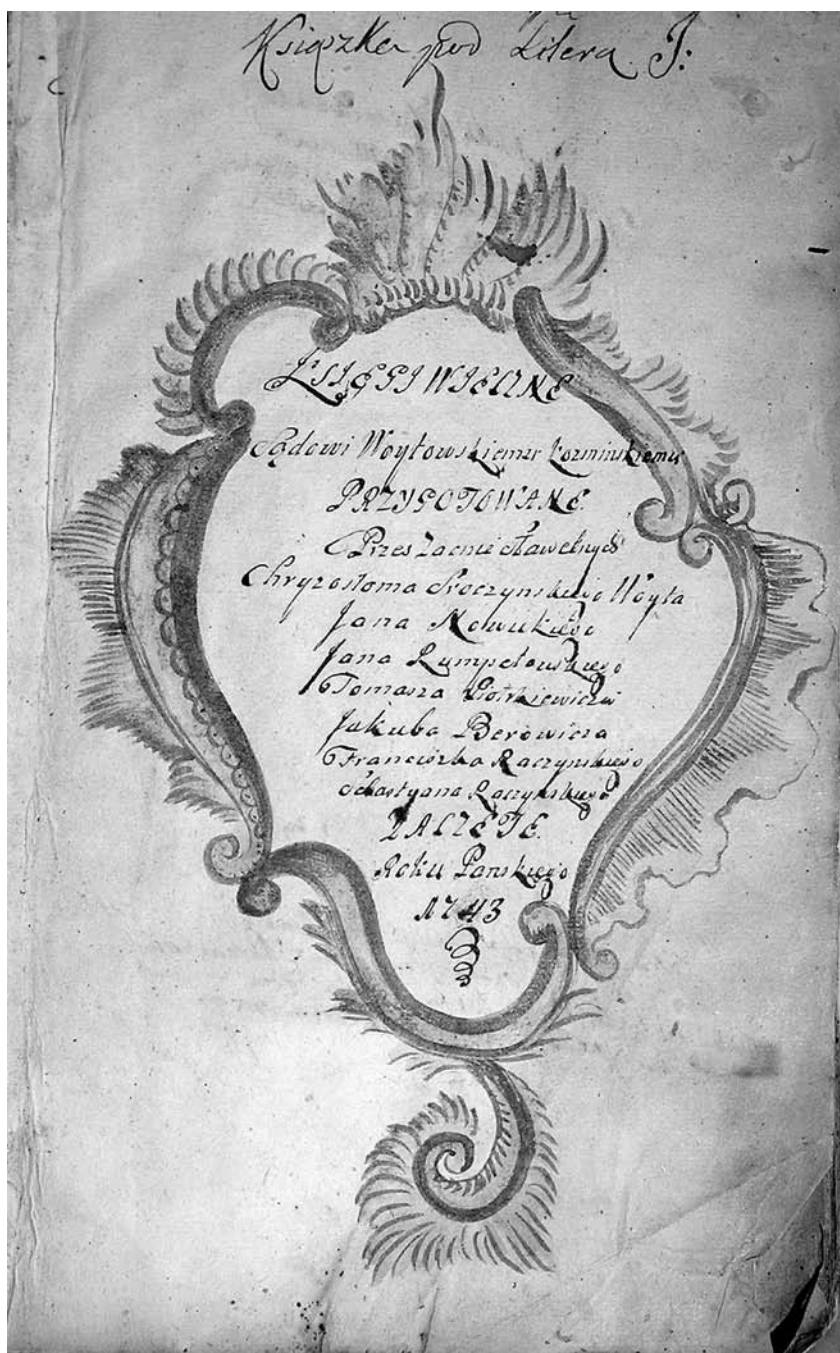 Książka pod Literą J:
KSIĘGI WIECZNE
Sądowi Woytowskiemu Kozminskiemu
PRZYGOTOWANE
Przes Zacnie Sławetnych
Chryzostoma Woyta
Jana Nowickiego
Jana
Tomasza Piotrkiewicza
Jakuba Berowicza
Franciszka Raczynskiego
Sebastyana Raczynskiego
ZACZĘTE
Roku Panskiego
1743